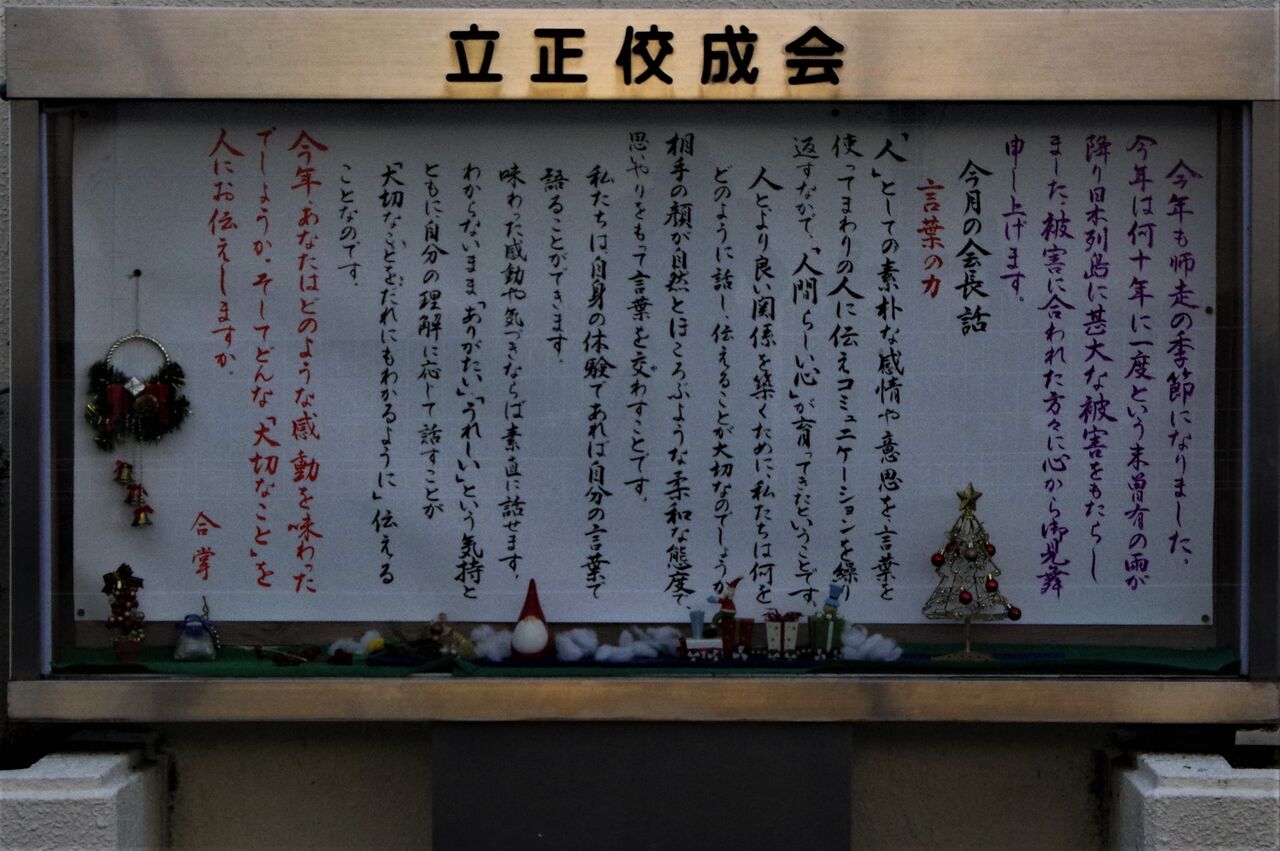 立正佼成会
今年も師走の季節になりました。
今年は何十年に一度という未曽有の雨が
降り日本列島に甚大な被害をもたらし
ました。被害に合われた方々に心から御見舞
申し上げます。
今月の会長話
言葉の力
「人」としての素朴な感情や意思を、言葉を
使ってまわりの人に伝えコミュニケーションを繰り
返すなかで、「人間らしい心」が育ってきたということです。
人とより良い関係を築くために、私たちは何を
どのように話し、伝えることが大切なのでしょうか
相手の顔が自然とほころぶような柔和な態度で、
思いやりをもって言葉を交わすことです。
私たちは自身の体験であれば自分の言葉で
語ることができます。
味わった感動や気づきならば素直に話せます。
わからないまま「ありがたい」「うれしい」という気持と
ともに自分の理解に応じて話すことが
「大切なことをだれにもわかるように」伝える
ことなのです。
今年、あなたはどのような感動を味わった
でしょうか。そしてどんな「大切なこと」を
人にお伝えしますか。
合掌